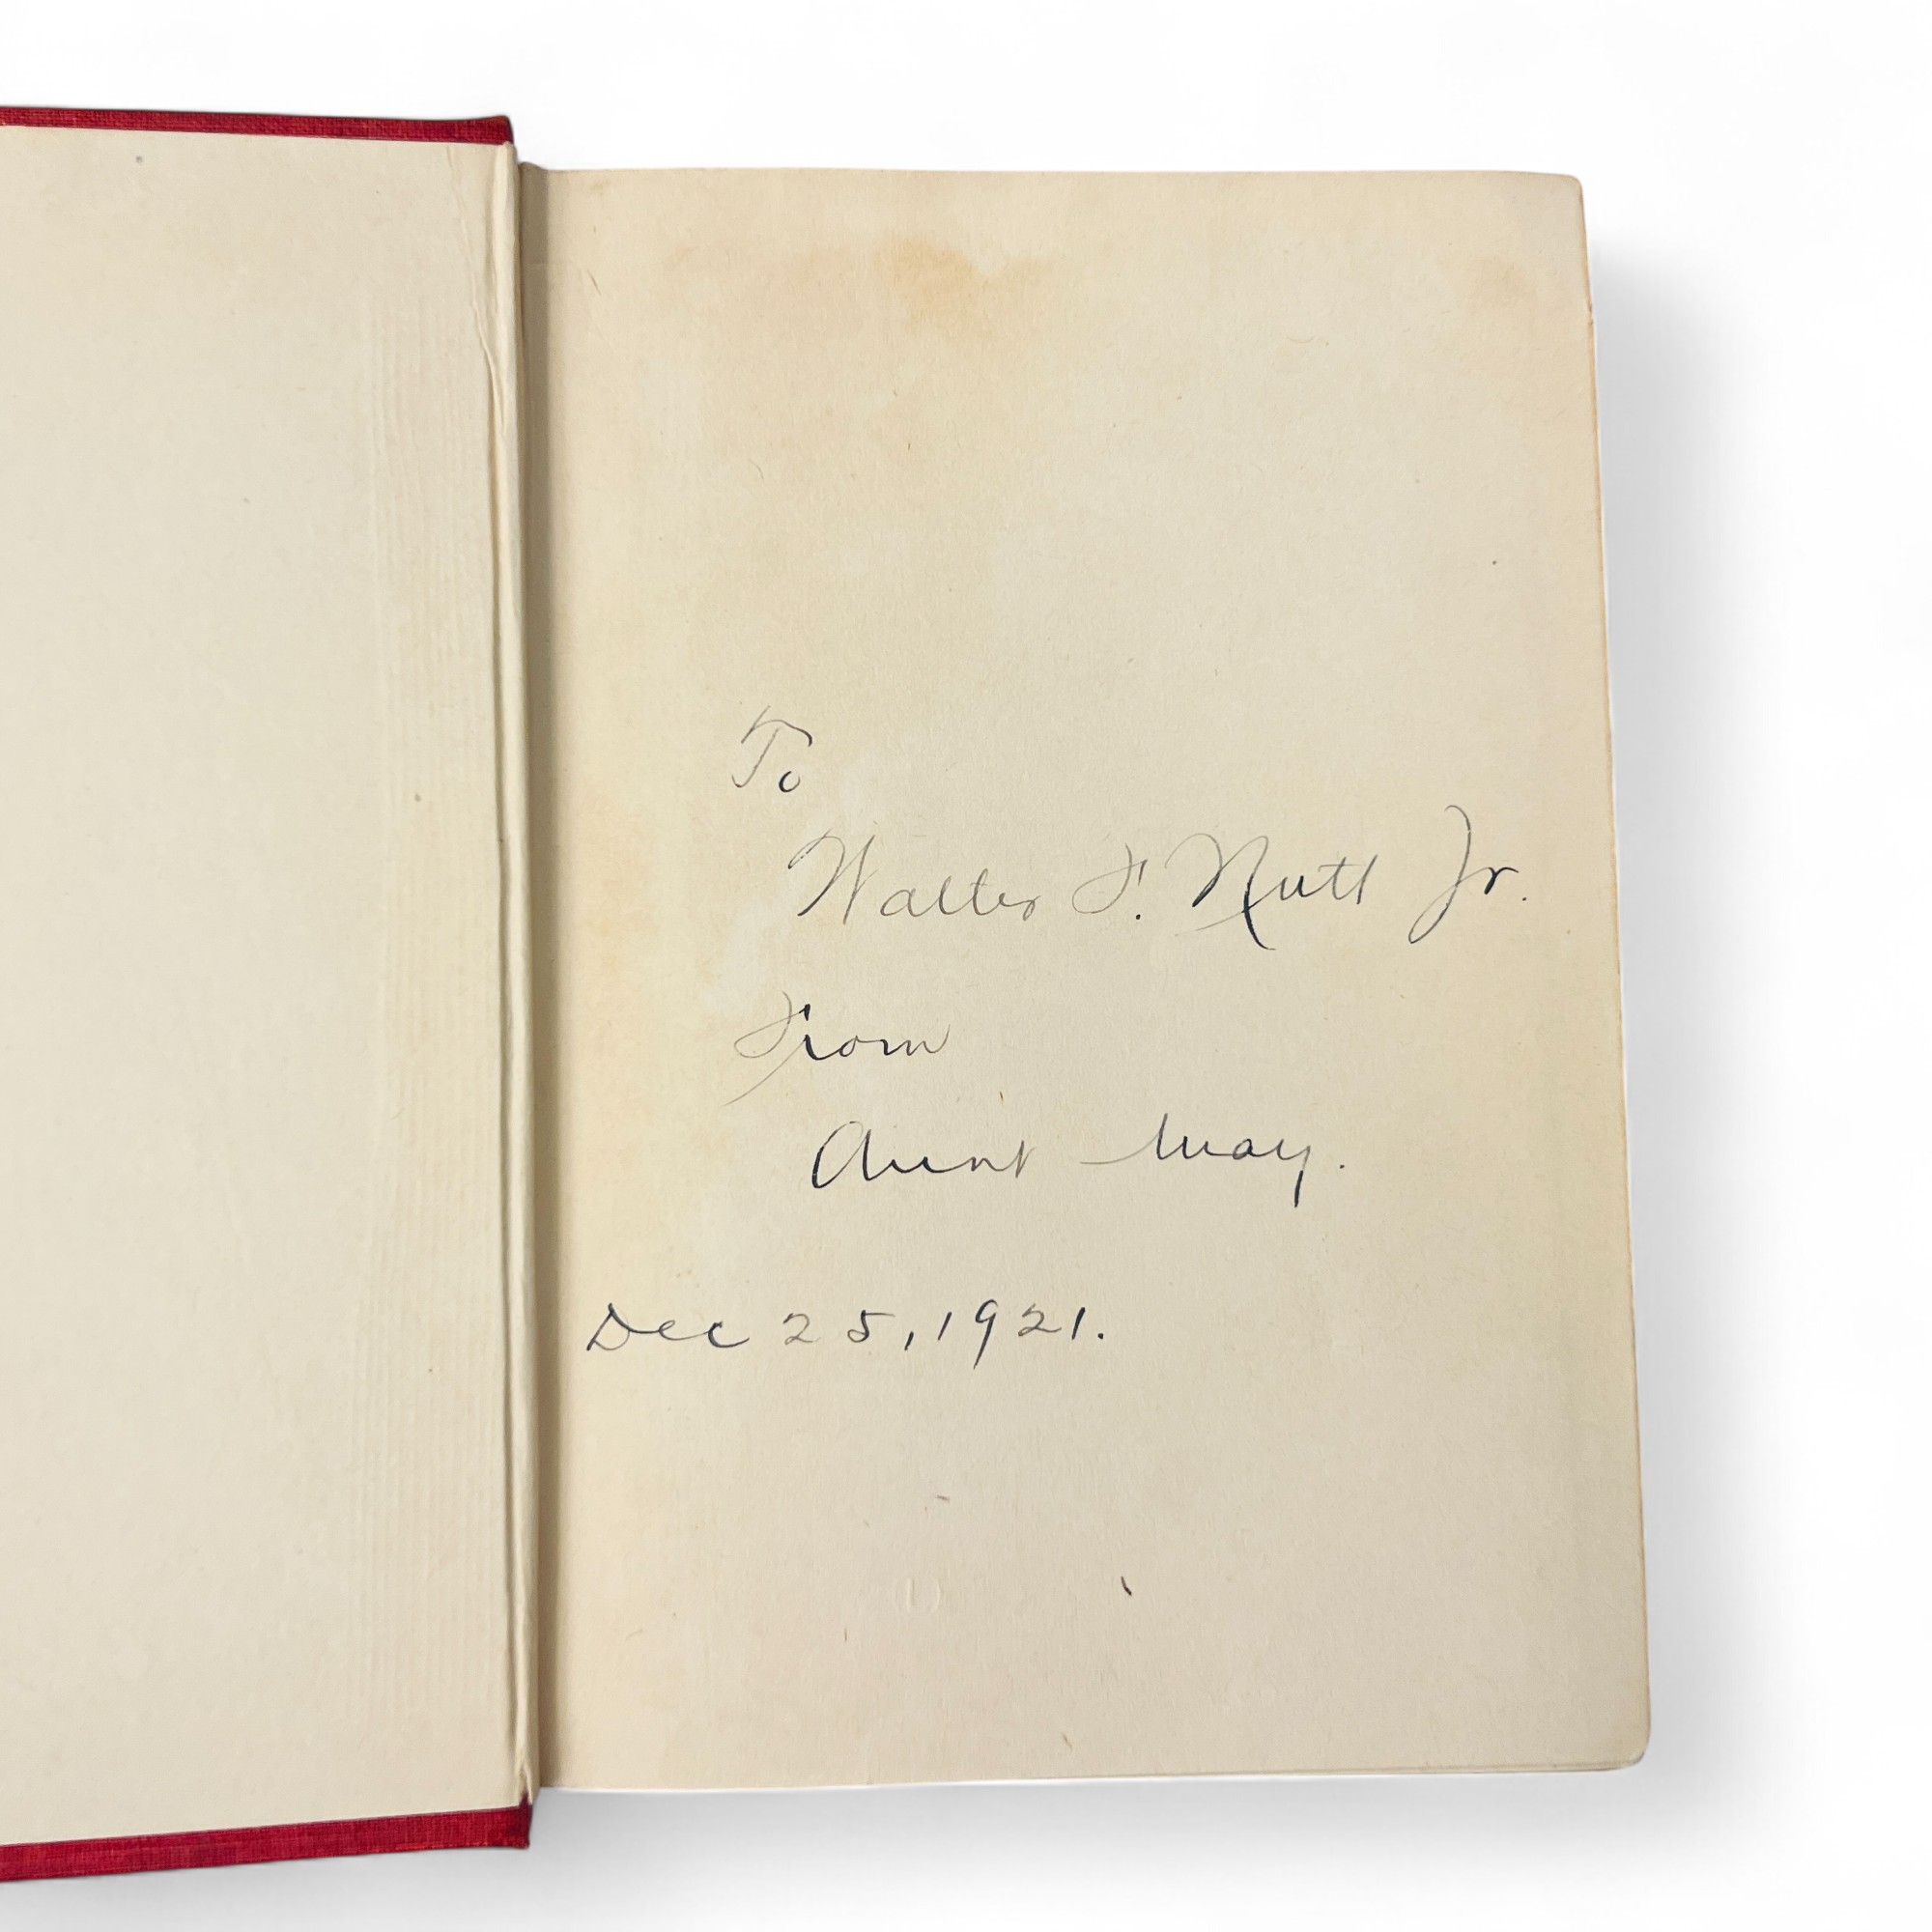 To
Walter F. Nutt Jr.
From
Aunt May.
Dec 25, 1921.